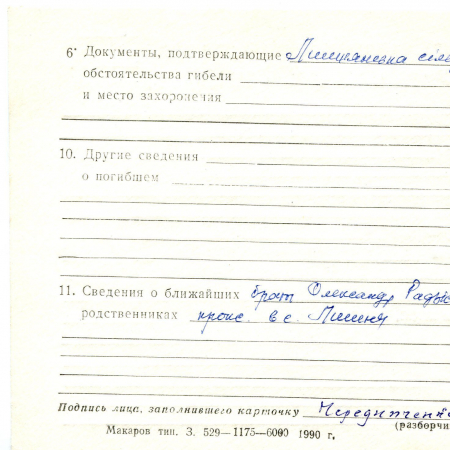 6. Документы, подтверждающие
обстоятельства гибели
и место захоронения
10. Другие сведения
о погибшем
11. Сведения о ближайших брат Олександр
родственниках прож. в с.
Подпись лица, заполнившего карточку
(разборчи
Макаров тип. З. 529—1175—6000 1990 г.